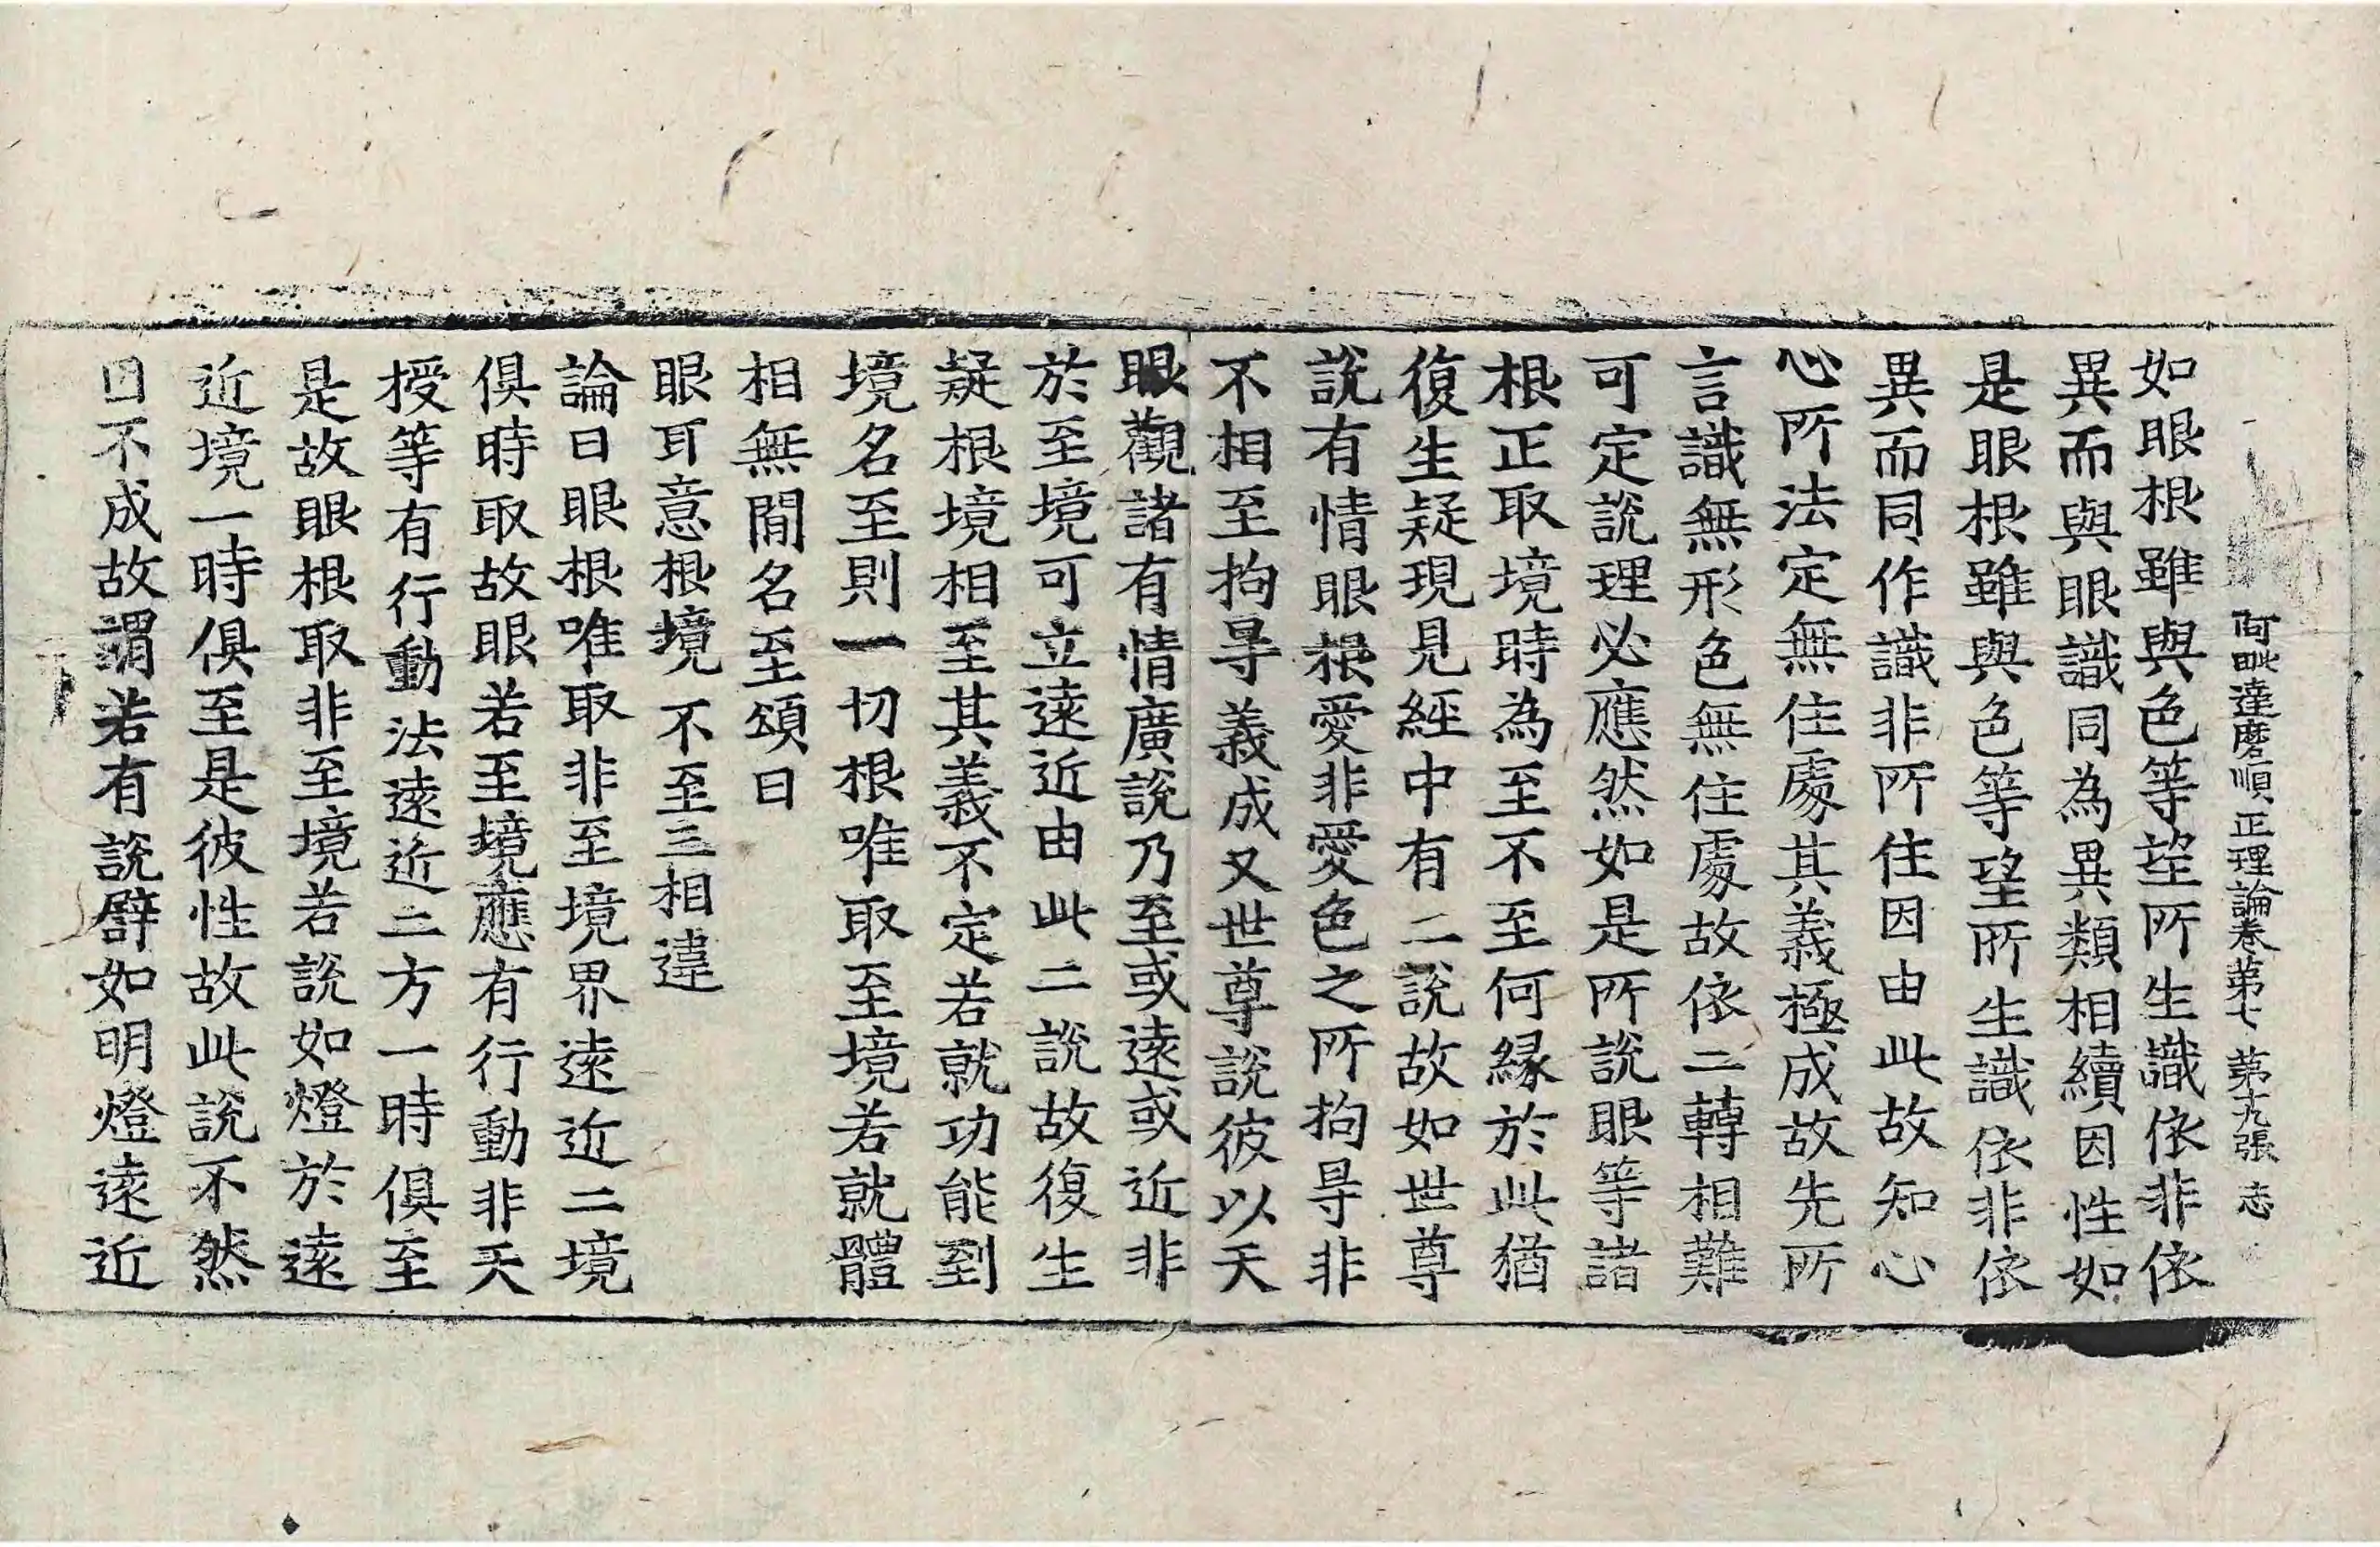 阿毗達磨順正理論卷第七　第十九張　志
如眼根雖與色等望所生識依非依
異而與眼識同為異類相續因性如
是眼根雖與色等望所生識依非依
異而同作識非所住因由此故知心
心所法定無住處其義極成故先所
言識無形色無住處故依二轉相難
可定說理必應然如是所說眼等諸
根正取境時為至不至何緣於此猶
復生疑現見經中有二說故如世尊
說有情眼根愛非愛色之所拘㝵非
不相至拘㝵義成又世尊說彼以天
眼觀諸有情廣說乃至或遠或近非
於至境可立遠近由此二說故復生
疑根境相至其義不定若就功能到
境名至則一切根唯取至境若就體
相無間名至頌曰
眼耳意根境　不至三相違
論曰眼根唯取非至境界遠近二境
俱時取故眼若至境應有行動非天
授等有行動法遠近二方一時俱至
是故眼根取非至境若說如燈於遠
近境一時俱至是彼性故此說不然
因不成故謂若有說譬如明燈遠近